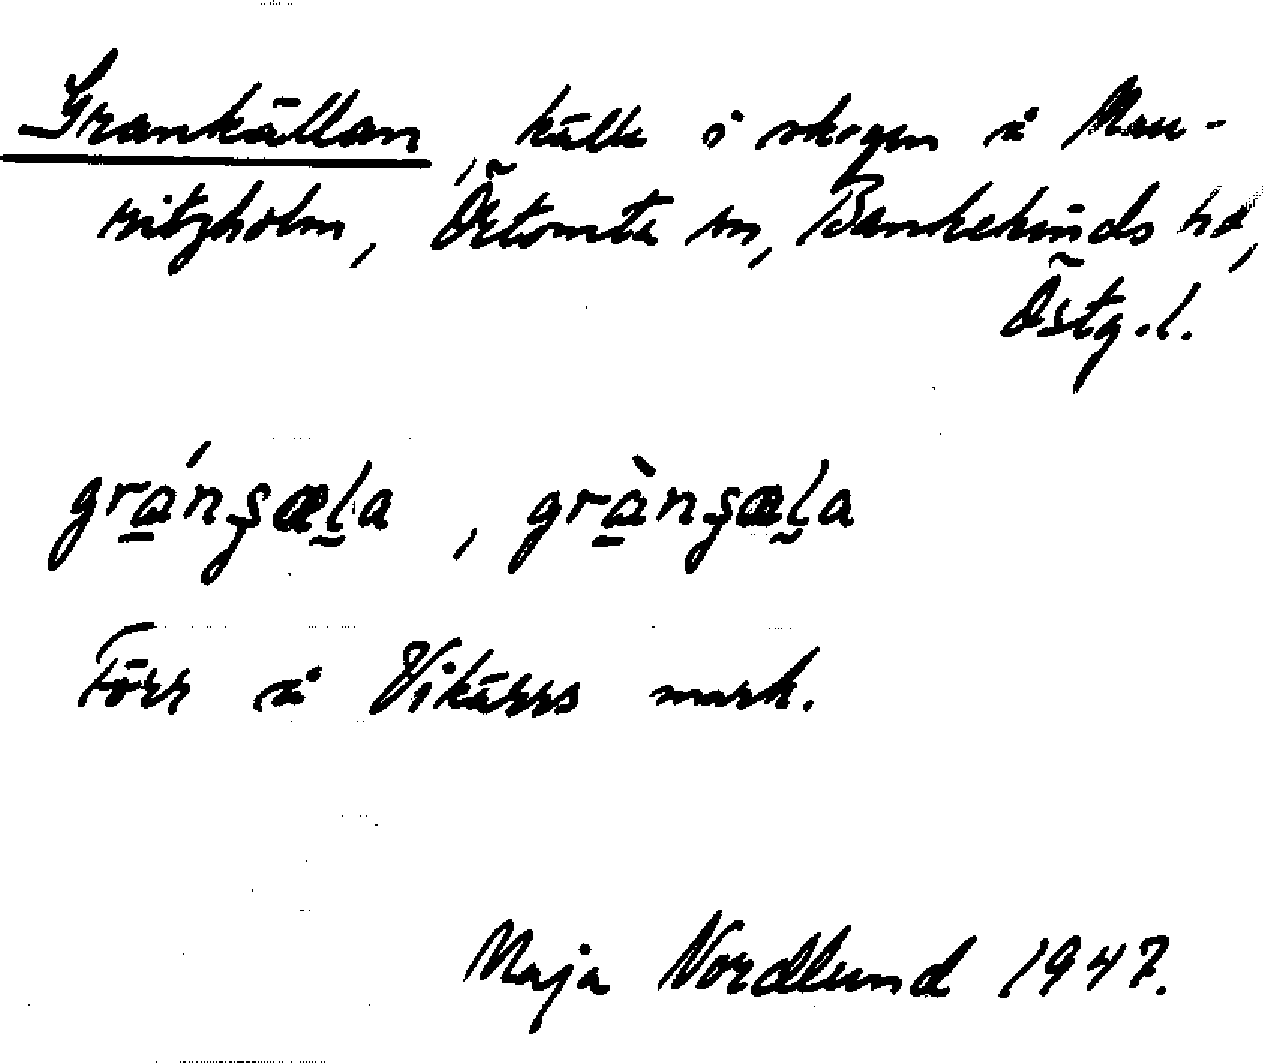 Grankällan, källa i skogen å Mau-
ritzholm, Örtomta sn, Bankekinds hd,
Östg. l.
grá̱nʂæl̰a, grà̱nʂæl̰a
Förr å Vikärrs mark.
Maja Nordlund 1947.